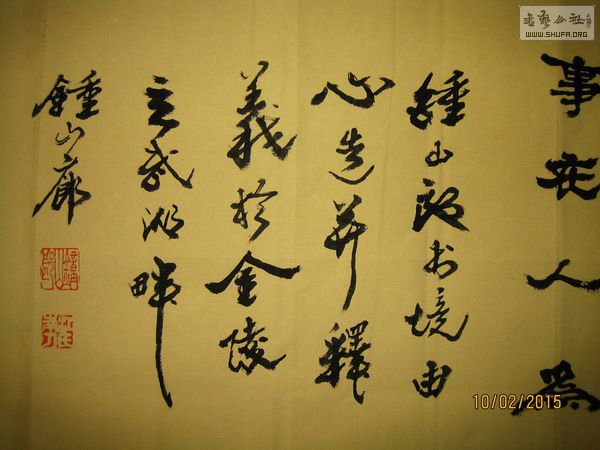 事在人為
鍾山郎书境由
心造并釋
義於金陵
玄武湖畔
鍾山廊
書藝公社
WWW.SHUFA.ORG
10/02/2015